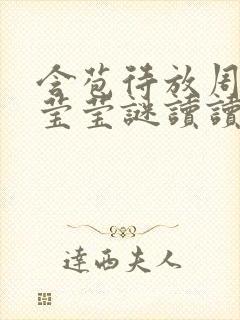 含苞待放周
莹莹謎讀讀
達西夫人